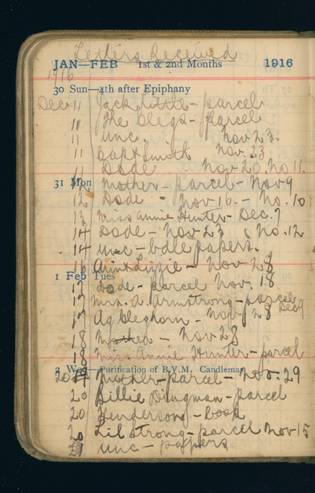 Letters Received
JAN—FEB 1st & 2nd Months 1916
1916
30 Sun—4th after Epiphany
Dec 11 Jack Little - parcel
11 The Clegs - parcel
11 unc. Nov 23.
11 Capt Smith Nov. 23
Dode Nov 20. No 11.
31 Mon Mother - Parcel - Nov 9
12 Dode - Nov 16. - No. 10
13 Miss Annie Hunter - Dec. 7
14 Dode - Nov 23 & No. 12
14 unc - bdle papers.
16 Aunt Lizzie - Nov 28
1 Feb Tues
17 Dode - parcel Nov. 18
17 Mrs. A. Armstrong - parcel
17 Ag Cleghorn - Nov 28
18 Mother - Nov 28
18 Miss Annie Hunter - parcel
2 Wed—Purification of B.V.M. Candlemas
20 Mother - Parcel - Nov. 29
20 Billie Dingman - parcel
20 Gunderson - book
20 Lil Strong - parcel Nov 15
21 unc - papers